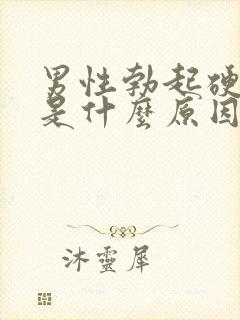 男性勃起硬
是什麼原因
沐靈犀